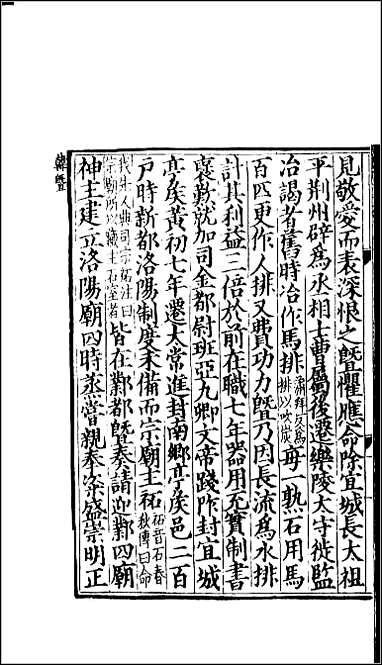 見敬愛而表深恨之暨懼應命除宜城長太祖
平荆州辟為丞相士曹屬後遷樂陵太守徙監
冶謁者舊時冶作馬排蒲拜反為排以吹炭每一熟石用馬
百匹更作人排又費功力暨乃因長流為水排
計其利益三倍於前在職七年器用充實制書
襃歎就加司金都尉班亞九卿文帝踐阼封宜城
亭矦黃初七年遷太常進封南鄉亭矦邑二百
戶時新都洛陽制度未備而宗廟主祏祏音石春秋傳曰命
我先人典司宗祏注曰宗廟所以藏主石室者皆在鄴都暨奏請迎鄴四廟
神主建立洛陽廟四時蒸嘗親奉粢盛崇明正
韓暨